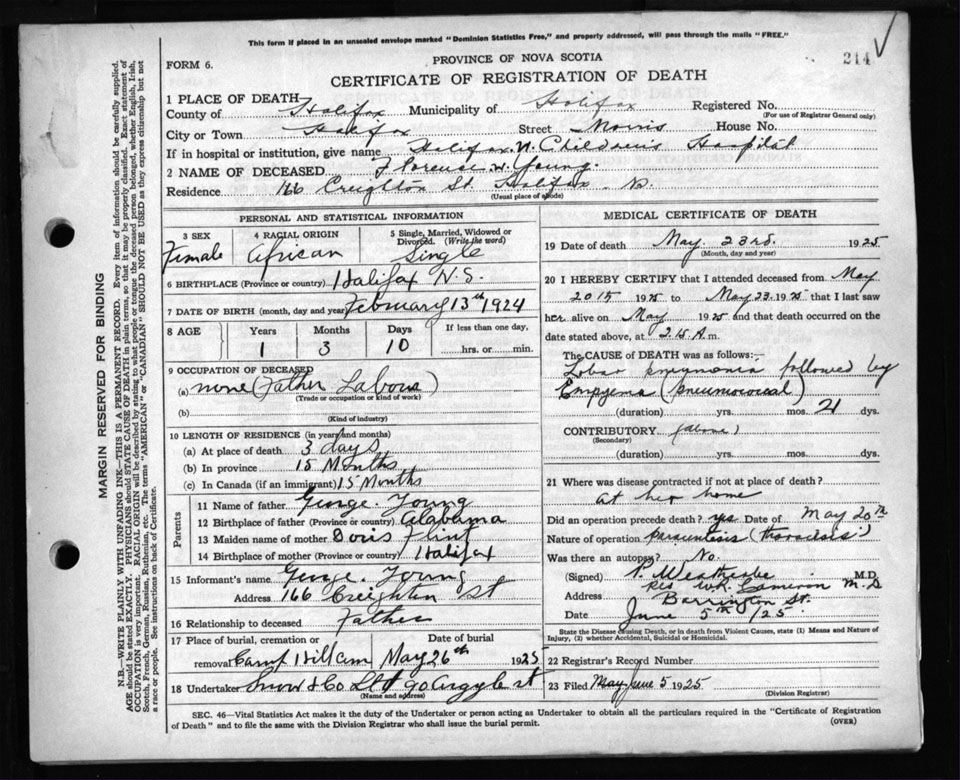 This form if placed in an unsealed envelope marked "Dominion Statistics Free," and properly addressed, will pass through the mails "FREE."
FORM 6.
PROVINCE OF NOVA SCOTIA
214
CERTIFICATE OF REGISTRATION OF DEATH
1 PLACE OF DEATH—
County of Halifax Municipality of Halifax Registered No.
(For use of Registrar General only)
City or Town Halifax Street Morris House No.
If in hospital or institution, give name Halifax Children's Hospital
2 NAME OF DECEASED Florence W. Young
Residence 166 Creighton St. Halifax
(Usual place of abode)
MARGIN RESERVED FOR BINDING
N.B.—WRITE PLAINLY WITH UNFADING INK—THIS IS A PERMANENT RECORD. Every item of information should be carefully supplied.
AGE should be stated EXACTLY. PHYSICIANS should STATE CAUSE OF DEATH in plain terms, so that it may be properly classified. Exact statement of
OCCUPATION is very important. RACIAL ORIGIN will be described by stating to what people or tongue the deceased person belonged, whether English, Irish,
Scotch, French, German, Russian, Ruthenian, etc. The terms "AMERICAN" or "CANADIAN" SHOULD NOT BE USED as they express citizenship but not
a race or people. See instructions on back of Certificate.
PERSONAL AND STATISTICAL INFORMATION
3 SEX
Female
4 RACIAL ORIGIN
African
5 Single, Married, Widowed or
Divorced. (Write the word)
Single
6 BIRTHPLACE (Province or country) Halifax N.S.
7 DATE OF BIRTH (month, day and year) February 13th 1924
8 AGE Years Months Days If less than one day,
1 3 10 hrs. or min.
9 OCCUPATION OF DECEASED
(a) none (Father Labour)
(Trade or occupation or kind of work)
(b)
(Kind of industry)
10 LENGTH OF RESIDENCE (in years and months)
(a) At place of death 3 days
(b) In province 15 Months
(c) In Canada (if an immigrant) 15 Months
Parents
11 Name of father George Young
12 Birthplace of father (Province or country) Alabama
13 Maiden name of mother Doris Flint
14 Birthplace of mother (Province or country) Halifax
15 Informant's name George Young
Address 166 Creighton St
16 Relationship to deceased Father
17 Place of burial, cremation or Date of burial
removal Camp Hill Cem May 26th 1925
18 Undertaker Snow & Co Ltd 90 Argyle st
(Name and address)
MEDICAL CERTIFICATE OF DEATH
19 Date of death May 23rd. 1925
(Month, day and year)
20 I HEREBY CERTIFY that I attended deceased from May
1925 to May 23 1925 that I last saw
her alive on May 1925 and that death occurred on the
date stated above, at 2.15 A. m.
The CAUSE OF DEATH was as follows:
Lobar pneumonia followed by
Empyema (pneumococcal)
(duration) yrs. mos. 21 dys.
CONTRIBUTORY (above)
(Secondary)
(duration) yrs. mos. dys.
21 Where was disease contracted if not at place of death?
At her home
Did an operation precede death? yes Date of May 20th
Nature of operation paracentesis (thoracis)
Was there an autopsy? No.
(Signed) M.D.
per W.R. Cameron M.D
Address Barrington St.
Date June 5th /25
State the Disease causing Death, or in death from Violent Causes, state (1) Means and Nature of
Injury, (2) whether Accidental, Suicidal or Homicidal.
22 Registrar's Record Number
23 Filed May June 5 1925
(Division Registrar)
SEC. 46—Vital Statistics Act makes it the duty of the Undertaker or person acting as Undertaker to obtain all the particulars required in the "Certificate of Registration
of Death" and to file the same with the Division Registrar who shall issue the burial permit.
(OVER)